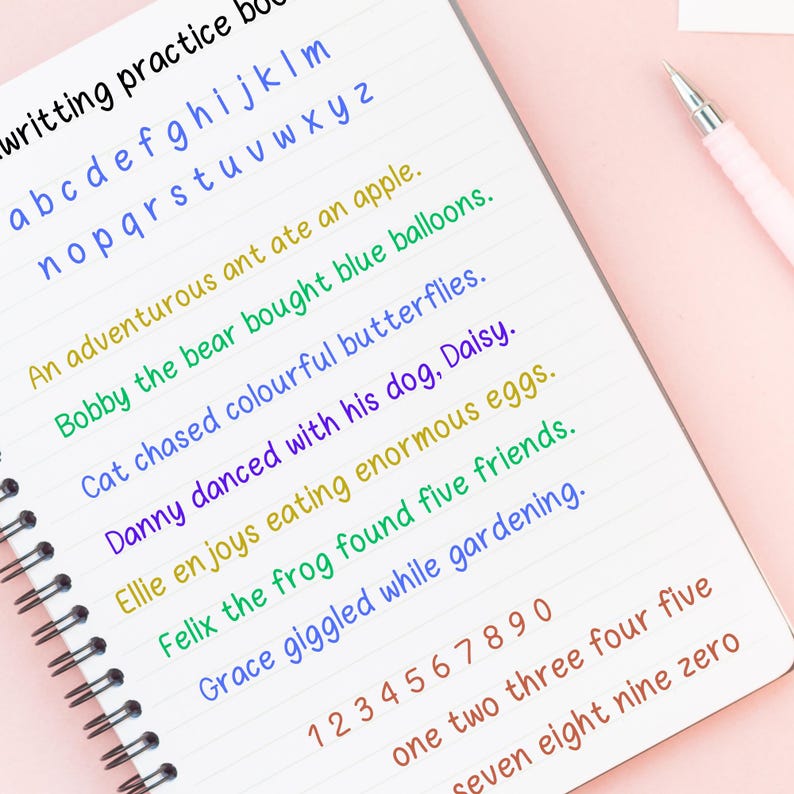 writting practice boo
a b c d e f g h i j k l m
n o p q r s t u v w x y z
An adventurous ant ate an apple.
Bobby the bear bought blue balloons.
Cat chased colourful butterflies.
Danny danced with his dog, Daisy.
Ellie enjoys eating enormous eggs.
Felix the frog found five friends.
Grace giggled while gardening.
1 2 3 4 5 6 7 8 9 0
one two three four five
seven eight nine zero